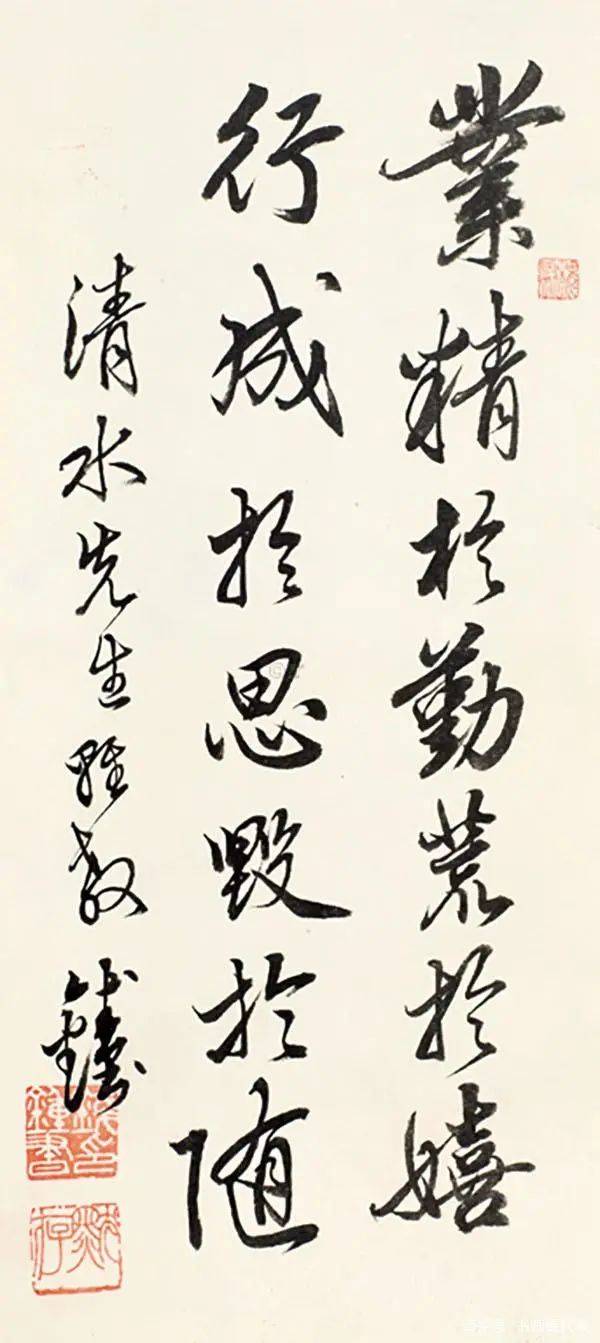 業精於勤荒於嬉
行成於思毀於随
清水先生雅教
錢印鍾書
默存